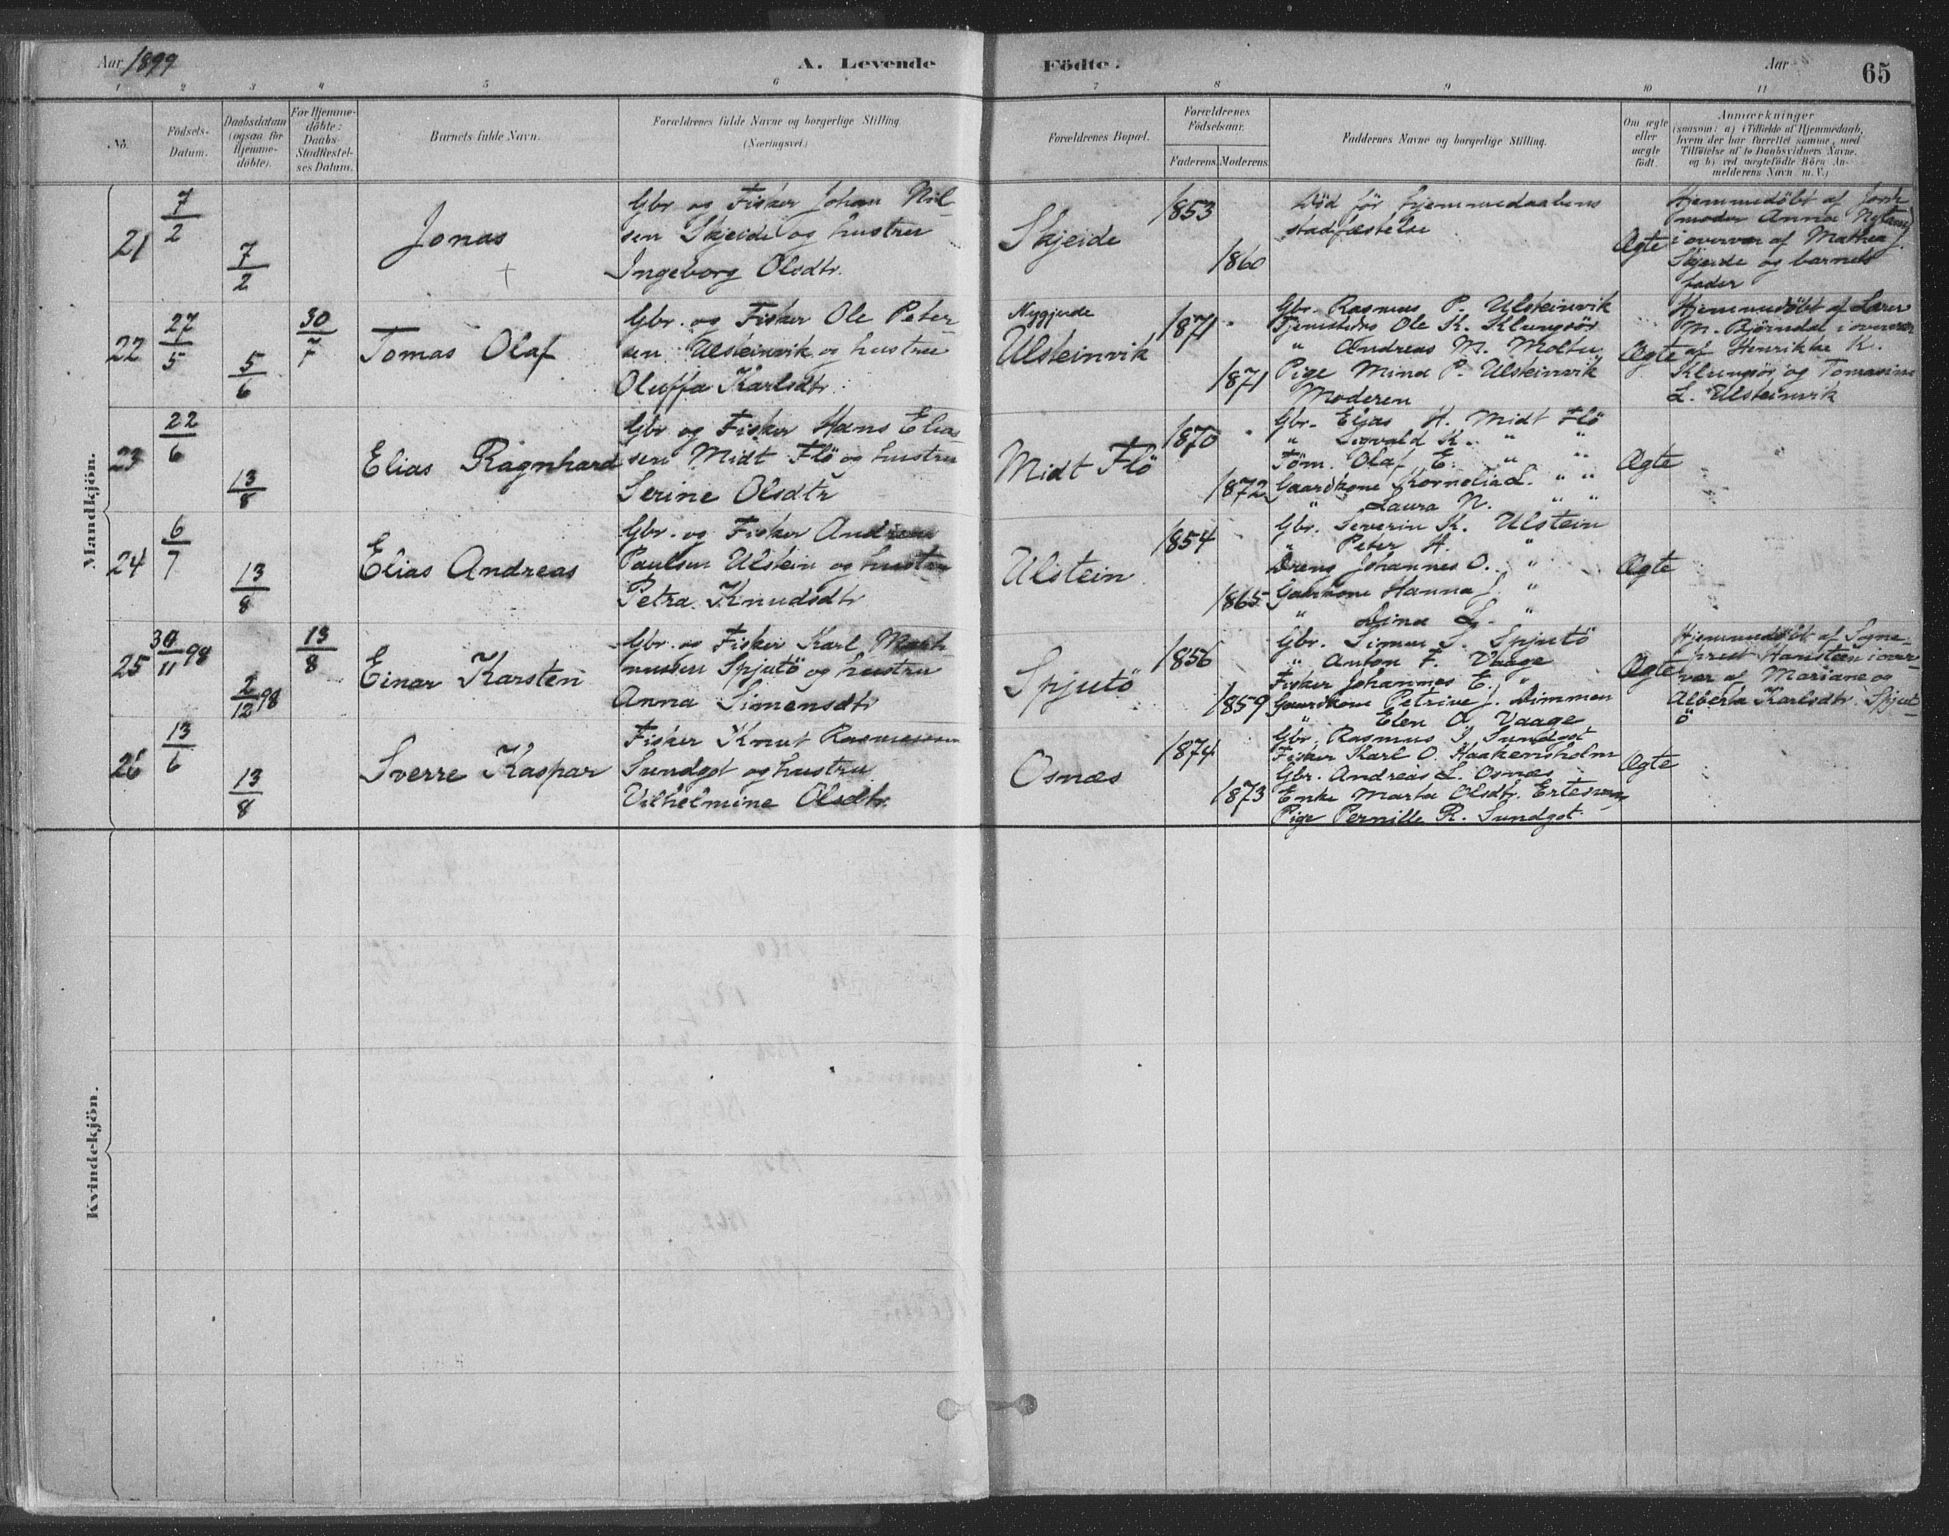 Aar 1899
A. Levende
Födte.
Aar
65
1 2 3 4 5 6 7 8 9 10 11
No.
Födsels-
Datum.
Daabsdatum
(ogsaa for
Hjemme-
döbte).
For Hjemme-
döbte:
Daabs-
Stadfæstel-
ses Datum.
Barnets fulde Navn.
Forældrenes fulde Navne og borgerlige Stilling
(Næringsvei.)
Forældrenes Bopæl.
Forældrenes
Födselsaar.
Faderens.
Moderens.
Faddernes Navne og borgerlige Stilling.
Om ægte
eller
uægte
födt.
Anmærkninger
(saasom: a) i Tilfælde af Hjemmedaab,
hvem der har forrettet samme, med
Tilföielse af to Daabsvidners Navne.
og b) ved uægtefödte Börn An-
melderens Navn m. V.)
Mandkjön.
21
7/2
7/2
Jonas
Gbr og Fisker Johan Nil-
sen Skjeide og hustru
Ingeborg Olsdtr.
Skjeide
1853
1860
Död för hjemmedaabens
stadfæstelse
Ægte
Hjemmedöbt af Jord-
moder Anna
i overvær af Mathea
Skjeide og barnets
fader
22
27/5
5/6
30/7
Tomas Olaf
Gbr. og Fisker Ole Peter-
sen Ulsteinvik og hustru
Oluffa Karlsdtr.
Nygjerde
Ulsteinvik
1871
1871
Gbr. Rasmus P. Ulsteinvik
Ole K. Klungsör
" Andreas M. Moltu
Pige Mina P. Ulsteinvik
Moderen
Ægte
Hjemmedöbt af Lærer
M. Björndal i overvær
af Henrikke K.
Klungsör og Tomasine
L. Ulsteinvik
23
22/6
13/8
Elias Ragnhard
Gbr og Fisker Hans Elia-
sen Midt Flö og hustru
Serine Olsdtr
Midt Flö
1870
1872
Gbr. Elias H. Midt Flö
" Sigvald K. " "
Töm. Olaf E. " "
Gaardkone Kornelia L. " "
" Laura N. " "
Ægte
24
6/7
13/8
Elias Andreas
Gbr. og Fisker Andreas
Paulsen Ulstein og hustru
Petra Knudsdtr
Ulstein
1854
1865
Gbr. Severin K. Ulstein
" Peter H. "
Dreng Johannes O. "
Gaardkone Hanna J. "
" Dina L. "
Ægte
25
30/11 98
2/12 98
13/8
Einar Karsten
Gbr. og Fisker Karl Mart-
inussen Spjutö og hustru
Anna Simensdtr
Spjutö
1856
1859
Gbr. Simen S. Spjutö
" Anton F. Vaage
Fisker Johannes E. "
Gaardkone Petrine J. Dimmen
" Elen A. Vaage
Ægte
Hjemmedöbt af Sogne-
prest Hanstein i over-
vær af Mariane og
Alberta Karlsdtr. Spjut-
ö
26
13/6
13/8
Sverre Kaspar
Fisker Knut Rasmussen
Sundgot og hustru
Vilhelmine Olsdtr.
Osnæs
1874
1873
Gbr. Rasmus J. Sundgot
Fisker Karl O. Haakensholm
Gbr. Andreas L. Osnæs
Enke Marta Olsdtr. Ertesvaag
Pige Pernille R. Sundgot
Ægte
Kvindekjön.